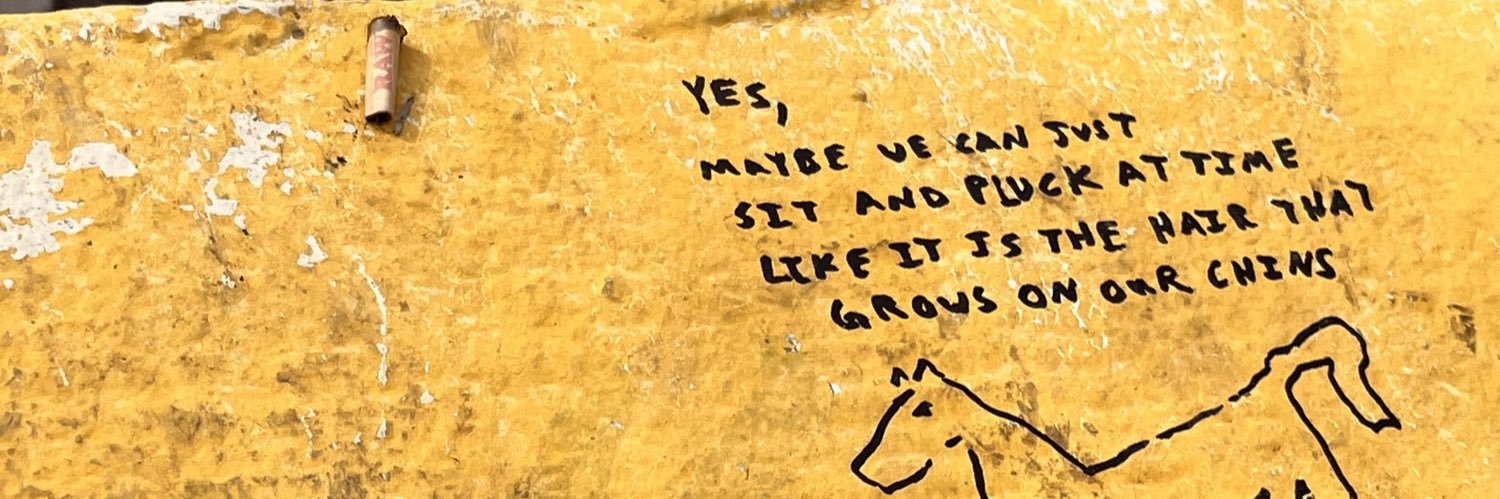 RAW
YES,
MAYBE WE CAN JUST
SIT AND PLUCK AT TIME
LIKE IT IS THE HAIR THAT
GROWS ON OUR CHINS